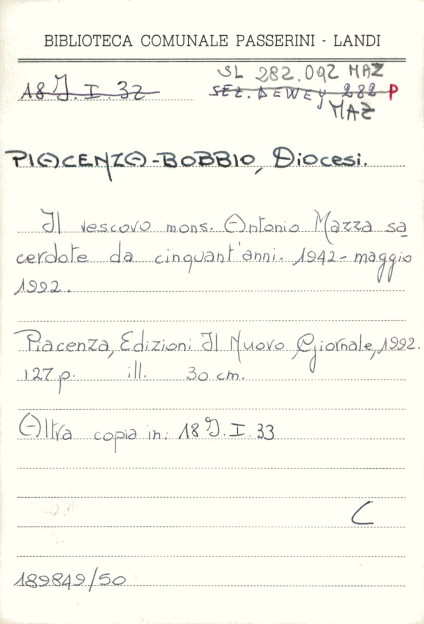 BIBLIOTECA COMUNALE PASSERINI - LANDI
SL 282.092 MAZ
18 J. I. 32
SEZ. DEWEY 282 P
MAZ
PIACENZA-BOBBIO, Diocesi.
Il vescovo mons. Antonio Mazza sa
cerdote da cinquant'anni. 1942-maggio
1992.
Piacenza, Edizioni Il Nuovo Giornale, 1992.
127 p. ill. 30 cm.
Altra copia in: 18 J. I. 33
C
189849/50